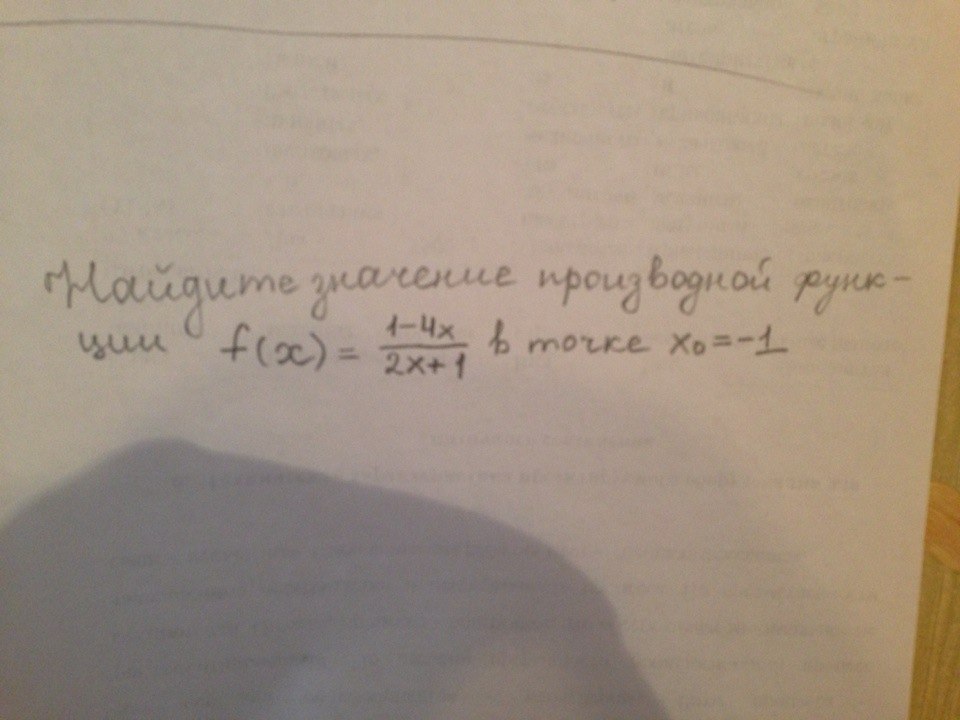 Найдите значение производной функ-
ции f(x) = \frac{1-4x}{2x+1} в точке x₀ = -1